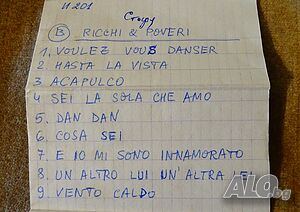 И 201
B RICCHI & POVERI
1. VOULEZ VOUS DANSER
2. HASTA LA VISTA
3 ACAPULCO
4 SEI LA SOLA CHE AMO
5. DAN DAN
6. COSA SEI
7. E IO MI SONO INNAMORATO
8. UN ALTRO LUI UN'ALTRA LEI
9. VENTO CALDO
ALO.bg